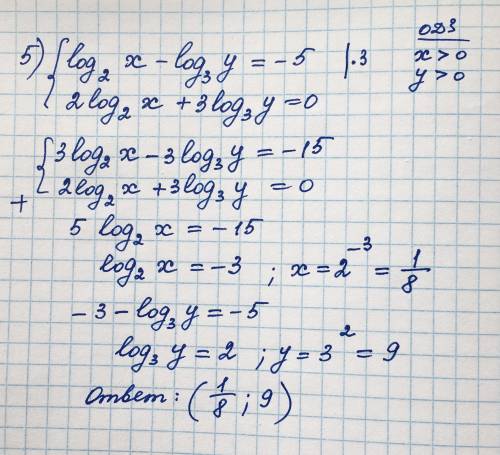 5) { log₂ x − log₃ y = −5 | ·3
2 log₂ x + 3 log₃ y = 0
ОДЗ
x > 0
y > 0
{ 3 log₂ x − 3 log₃ y = −15
+ 2 log₂ x + 3 log₃ y = 0
5 log₂ x = −15
log₂ x = −3 ; x = 2⁻³ = 1/8
−3 − log₃ y = −5
log₃ y = 2 ; y = 3² = 9
Ответ: (1/8 ; 9)